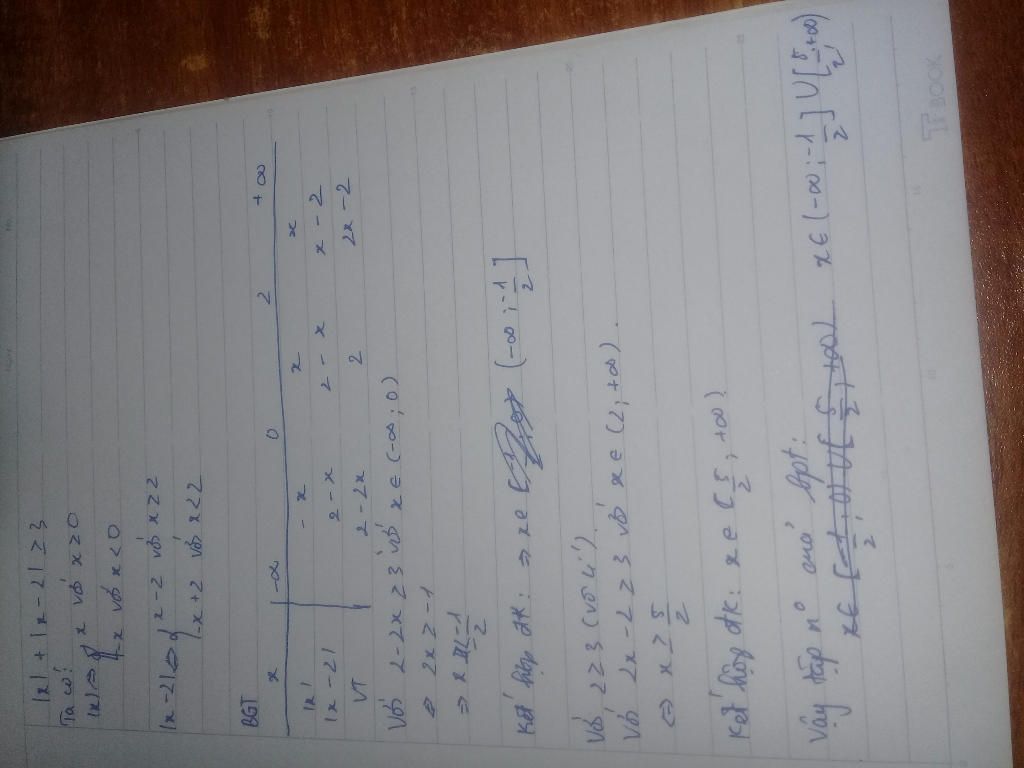 |x| + |x - 2| ≥ 3
Ta có:
|x| ⇔ { x với x ≥ 0
-x với x < 0
|x - 2| ⇔ { x - 2 với x ≥ 2
-x + 2 với x < 2
BGT
x -∞ 0 2 +∞
|x| -x x x
|x - 2| 2 - x 2 - x x - 2
VT 2 - 2x 2 2x - 2
Với 2 - 2x ≥ 3 với x ∈ (-∞; 0)
⇔ 2x ≥ -1
⇒ x -1/2
Kết hợp đk: ⇒ x ∈ (-∞; -1/2]
Với 2 ≥ 3 (vô lí).
Với 2x - 2 ≥ 3 với x ∈ (2; +∞).
⇔ x ≥ 5/2
Kết hợp đk: x ∈ [5/2; +∞)
Vậy tập n° của bpt:
x ∈ [-1/2; 0) ∪ [5/2; +∞) x ∈ (-∞; -1/2] ∪ [5/2; +∞)
BOOK